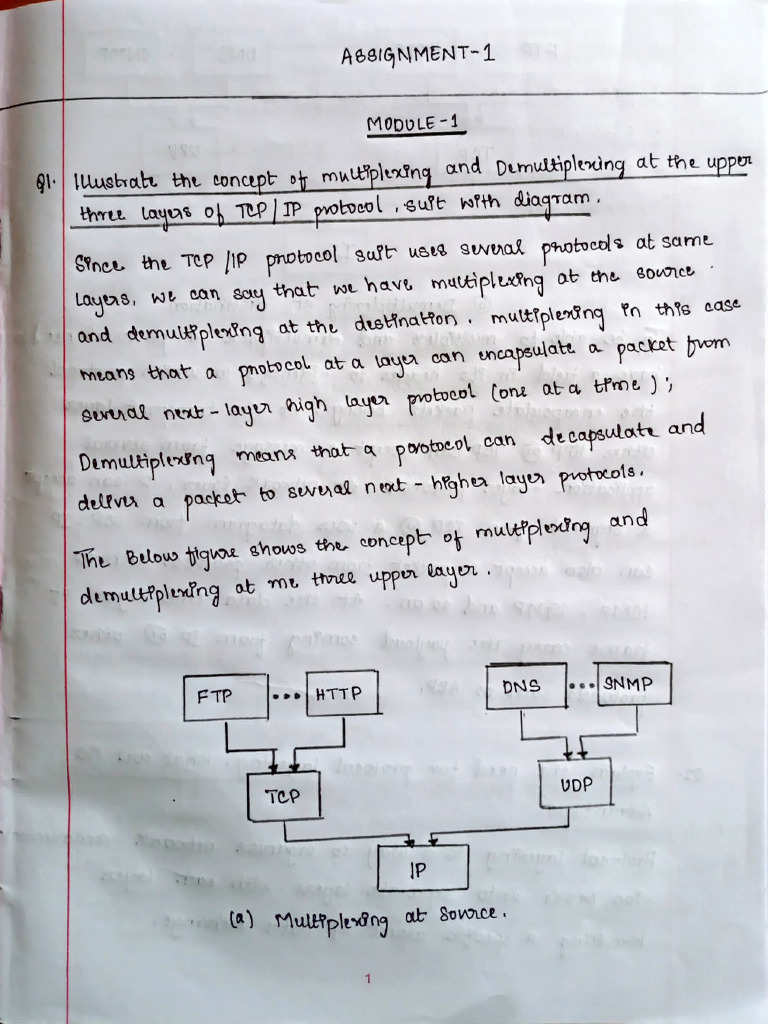 ASSIGNMENT-1
MODULE-1
Q1. Illustrate the concept of multiplexing and Demultiplexing at the upper
three layers of TCP/IP protocol, suit with diagram.
Since the TCP/IP protocol suit uses several protocols at same
layers, we can say that we have multiplexing at the source
and demultiplexing at the destination. multiplexing in this case
means that a protocol at a layer can encapsulate a packet from
several next-layer high layer protocol (one at a time);
Demultiplexing means that a porotocol can decapsulate and
deliver a packet to several next-higher layer protocols.
The Below figure shows the concept of multiplexing and
demultiplexing at me three upper layer.
FTP ... HTTP DNS ... SNMP
TCP UDP
IP
(a) Multiplexing at source.
1